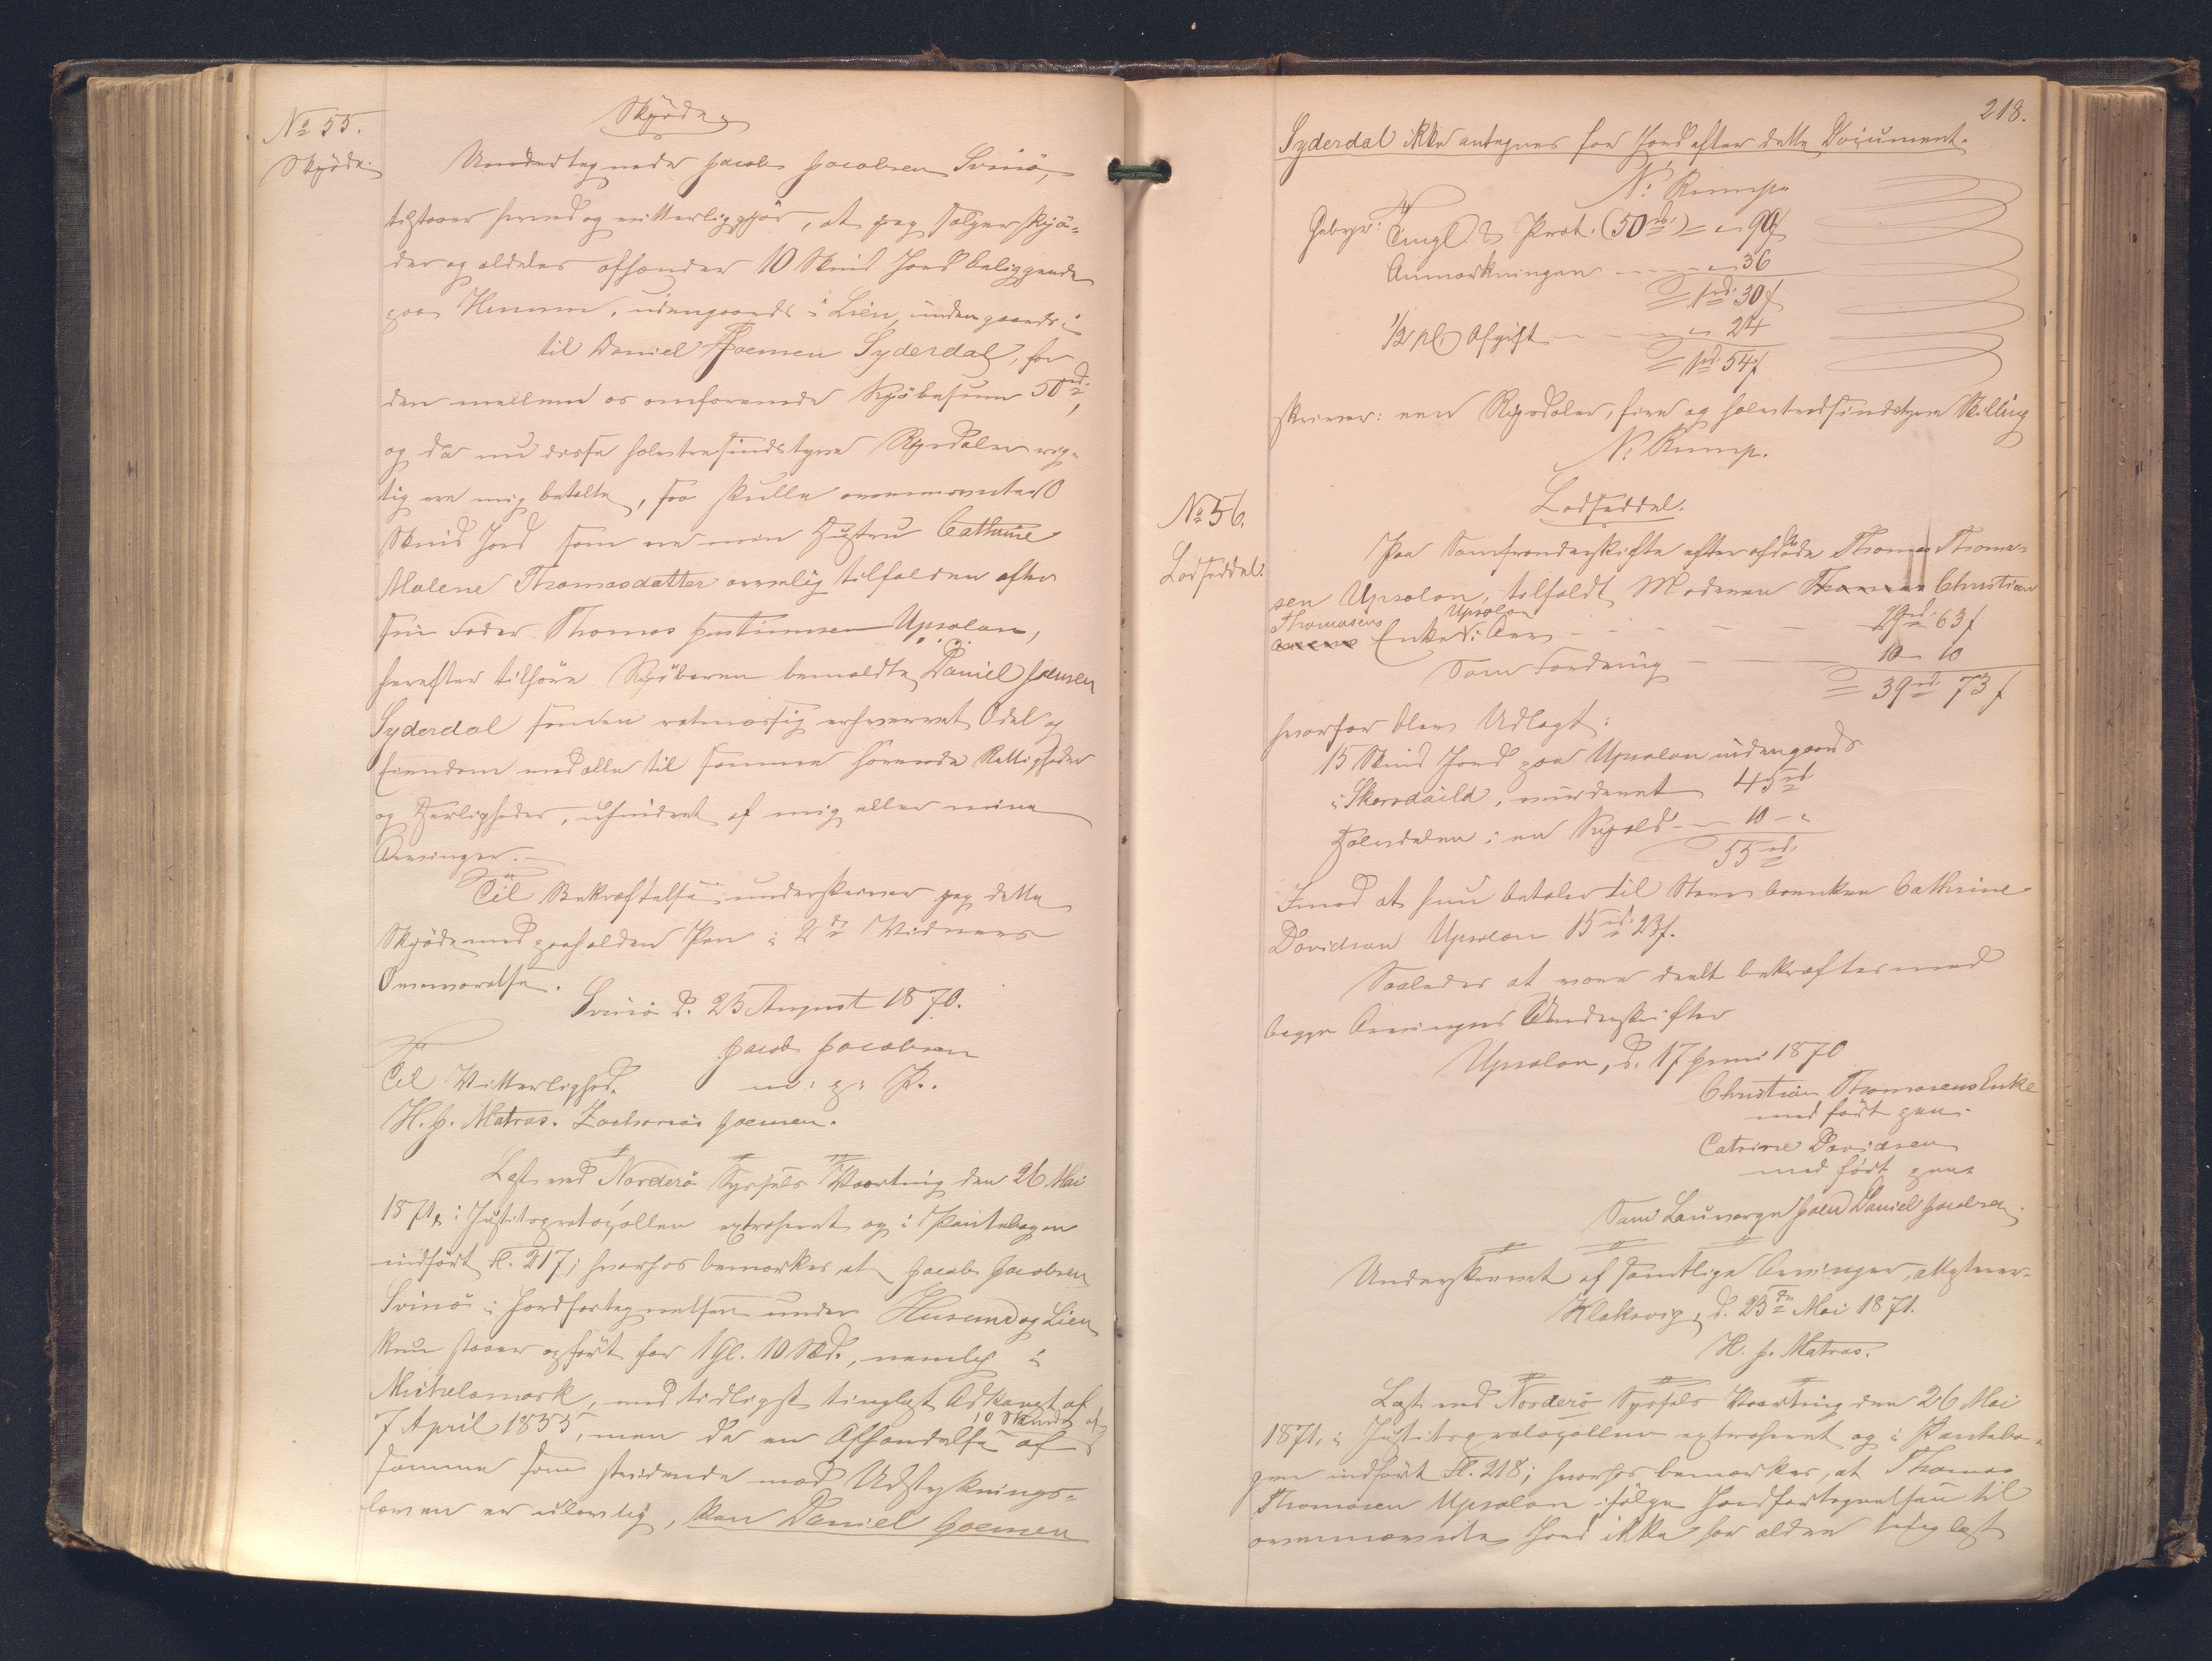 No 55.
Skjöde.
Skjöde
Undertegnede Jacob Jacobsen Svinö,
tilstaaer herved og vitterliggjör, at jeg sælger skjö-
der og aldeles afhænder 10 Skind Jord beliggende
paa Husum, udengaards i Lien, indengaards i
til Daniel Joensen Syderdal, for
den mellem os omforenede Kjöbesum 50 rd.,
og da nu disse halvtredsindstyve Rigsdaler rig-
tig ere mig betalte, saa skulle ovennævnte 10
Skind Jord som er min Hustru Cathrine
Malene Thomasdatter arvelig tilfalden efter
sin Fader Thomas Justinussen Upsalon,
herefter tilhöre Kjöberen bemeldte Daniel Joensen
Syderdal som en retmæssig erhvervet Odel og
Eiendom med alle til samme hörende Rettigheder
og Herligheder, uhindret af mig eller mine
Arvinger.
Til Bekræftelse underskriver jeg dette
Skjöde med paaholden Pen i 2de Vidners
Overværelse.
Svinö d. 25 August 1870.
Jacob Jacobsen
m: p: P.
Til Vitterlighed.
H. J. Matras. Zacharias Joensen.
Læst ved Norderö Syssels Vaarting den 26 Mai
1871, i Justitsprotocollen extraheret og i Pantebogen
indfört Fl. 217; hvorhos bemærkes, at Jacob Jacobsen
Svinö i Jordfortegnelsen under Husum og Lien
kun staaer opfört for 1 Gl. 10 Skd., nemlig i
Mickelsmark, med tidligst tinglæst Adkomst af
7 April 1855, men da en Afhændelse af 10 Skind af
samme som stridende mod Udstyknings-
loven er ulovlig, kan Daniel Joensen
218.
Syderdal ikke antegnes for Jord efter dette Document.
N. Rump
Gebyr: Tingl. & Prot. (50 rd.) = " 90 ſ
Anmærkningen - - - " 36
= 1 rd. 30 ſ
1/2 pCt. Afgift - - - " 24
= 1 rd. 54 ſ
skriver: een Rigsdaler, fire og halvtredsindstyve Skilling
N. Rump.
No 56.
Lodseddel.
Lodseddel.
Paa Samfrændeskifte efter afdöde Thomas Thoma-
sen Upsalon, tilfaldt Moderen Christian
Thomasens Enke Upsalon i Arv - - - 29 rd. 63 ſ
Som Fordring - 10 - 10
= 39 rd. 73 ſ
hvorfor blev Udlagt:
15 Skind Jord paa Upsalon indengaards
i Skoradaild, vurderet 45 rd.
Halvdelen i en Kjæld - 10 - "
55 rd.
Imod at hun betaler til Steenkone Cathrine
Davidsen Upsalon 15 rd. 23 ſ.
Saaledes at være deelt bekræftes med
begge Arvingers Underskrifter
Upsalon, d. 17 Juni 1870
Christian Thomasens Enke
med fört pen.
Catrine Davidsen
med fört pen.
Som Lauværge Joen Daniel Jacobsen.
Underskrevet af samtlige Arvinger, attesteres.
Klaksvig, d. 25de Mai 1871.
H. J. Matras.
Læst ved Norderö Syssels Vaarting den 26 Mai
1871, i Justitsprotocollen extraheret og i Pantebo-
gen indfört Fl. 218; hvorhos bemærkes, at Thomas
Thomasen Upsalon ifölge Jordfortegnelsen til
ovennævnte Jord ikke har ældre tinglæst